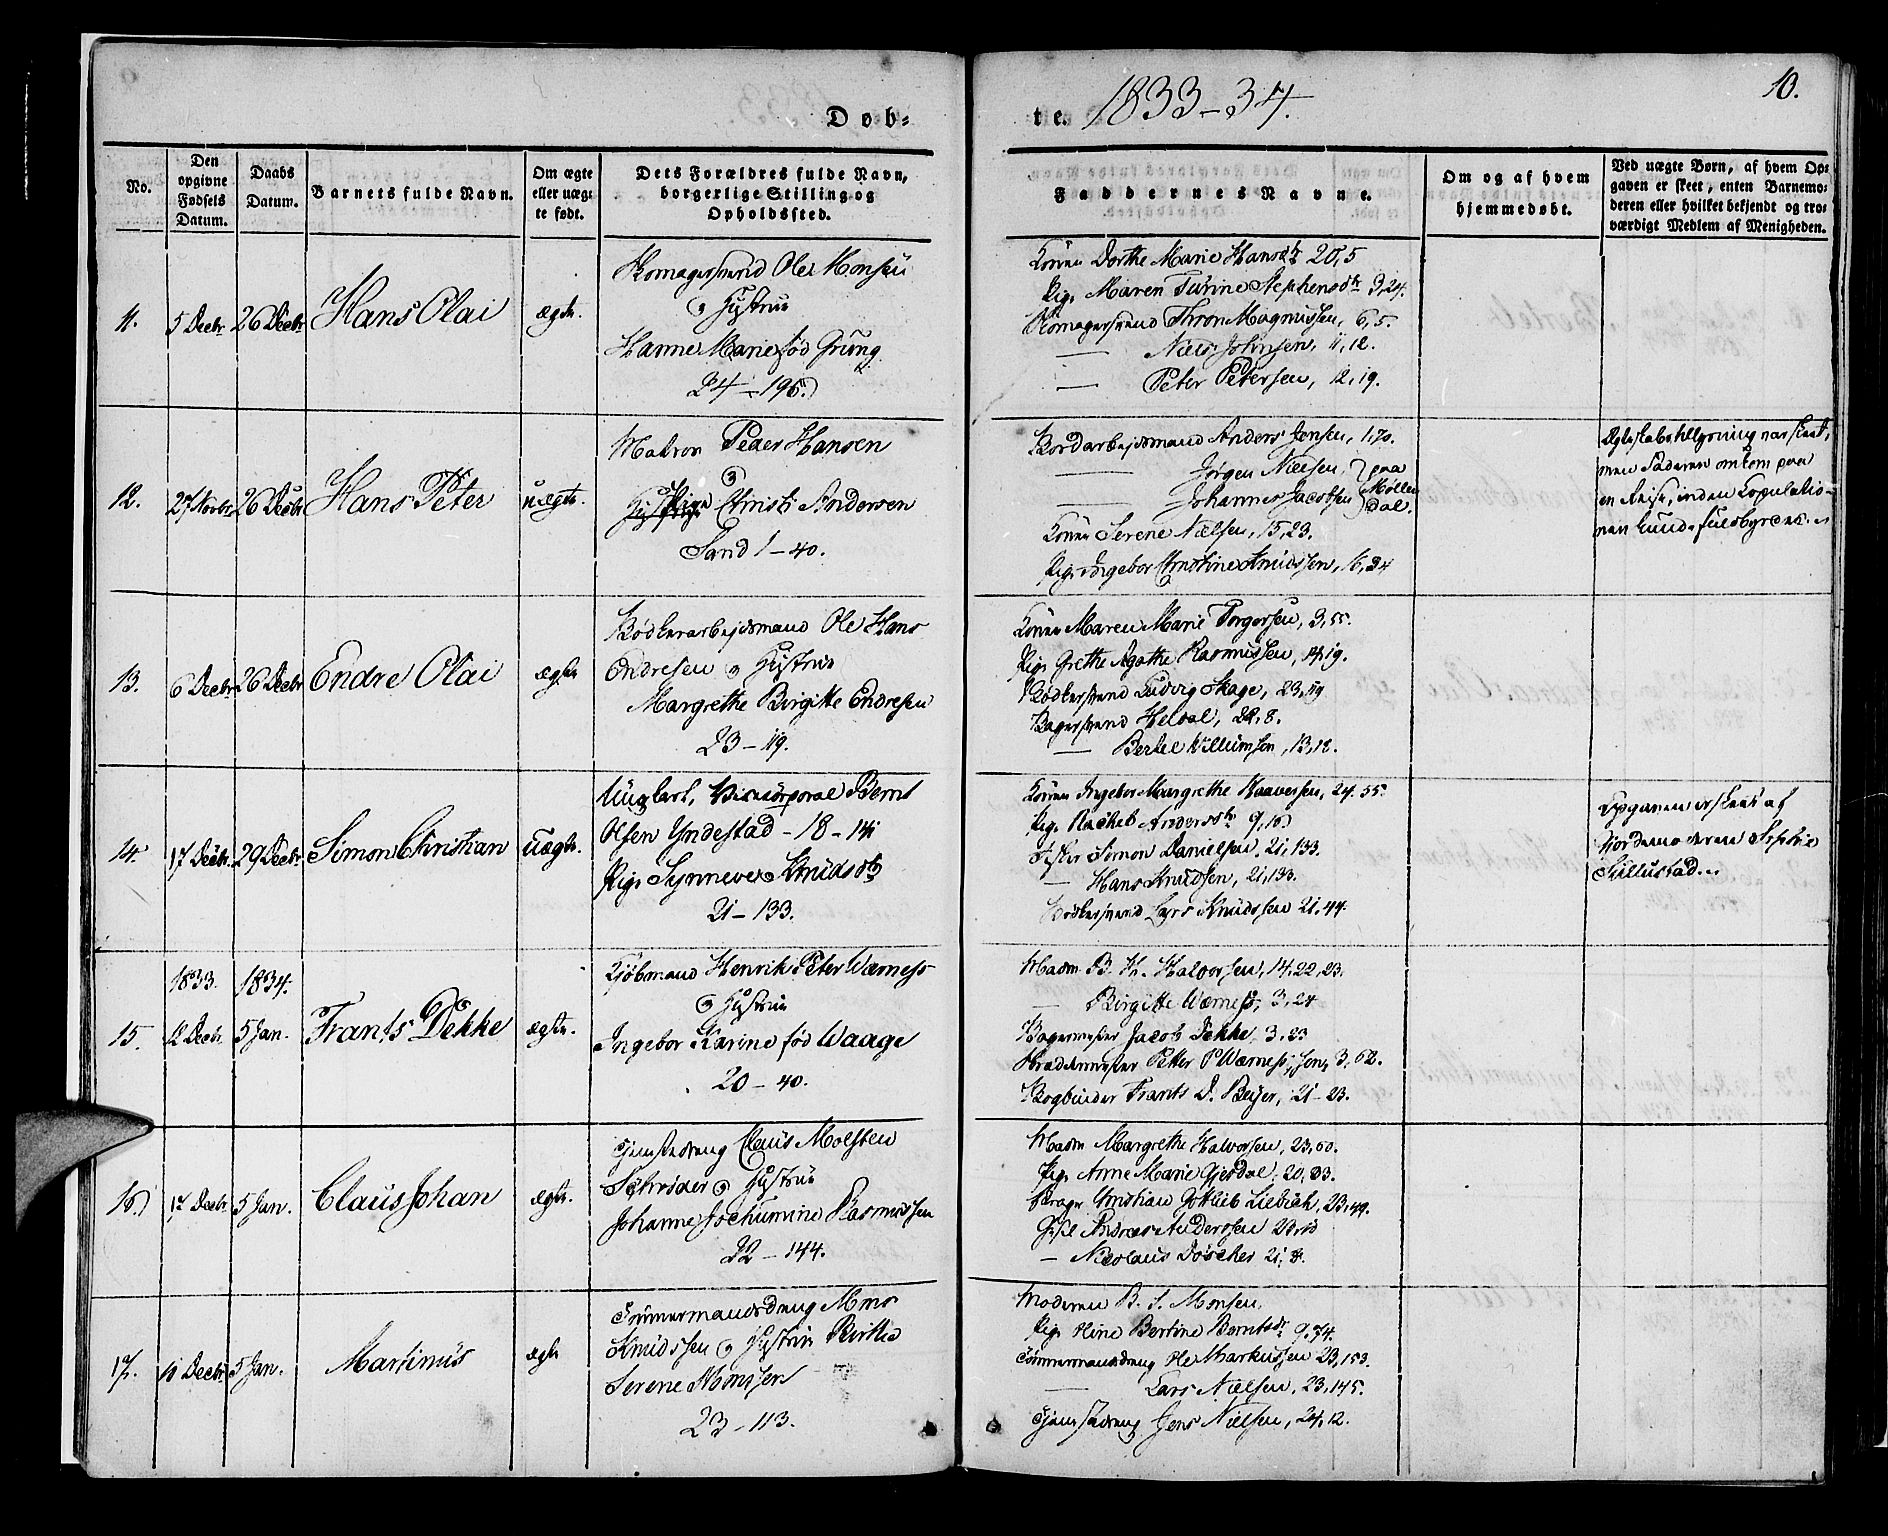 Døb=
te. 1833-34. 10.
No.
Den
opgivne
Fødsels
Datum.
Daabs
Datum.
Barnets fulde Navn.
Om ægte
eller uægt
te født.
Dets Forældres fulde Navn,
borgerlige Stilling og
Opholdssted.
Faddernes Navne.
Om og af hvem
hjemmedøbt.
Ved uægte Børn, af hvem Op=
gaven er skeet, enten Barnemo=
deren eller hvilket bekjendt og tro=
værdigt Medlem af Menigheden.
11. 5 Decbr 26 Decbr Hans Olai ægte.
Skomagersvend Ole Monsen
og Hustrue
Hanne Marie fød Grung
24-196.
Konen Dorthe Marie Hansdtr 20,5
Pige Maren Turine Stephensdtr 3,24.
Skomagersvend Thron Magnussen, 6,5.
— Niels Johnsen, 11,12.
— Peter Petersen, 12,19.
12. 27 Novbr 26 Decbr Hans Peter uægte.
Matros Peder Hansen
og
Pige Christi Andersen
Sand 1-40.
Bordarbejdsmand Anders Jensen, 1,70.
— Jørgen Nielsen, paa
— Johannes Jacobsen Mølle
dal.
Konen Serene Nielsen, 15,23.
Pige Ingebor Christine Knudssen, 16,34
Ægteskabstillysning var skeet,
men Faderen omkom paa
en Reise, inden Copulatio-
nen kunde fuldbyrdes.
13. 6 Decbr 26 Decbr Endre Olai ægte
Bødkerarbejdsmand Ole Hans
Endresen og Hustrue
Margrethe Birgitte Endresen
23-119.
Konen Maren Marie Torgersen, 3,55.
Pige Grethe Agathe Rasmussen, 14,19.
Bødkersvend Ludvig Skage, 23,119
Bagersvend Heldal, 22,8.
— Bertel Willumsen, 13,12.
14. 17 Decbr 29 Decbr Simon Christian uægte.
Ungkarl, Vicecorporal Bernt
Olsen Yndestad - 18-141
Pige Synneve Knudsdtr
21-133.
Konen Ingebor Margrethe Haaversen, 24.55.
Pige Rachel Andersdtr 9,16
Fisker Simon Danielsen, 21,133
— Hans Knudsen, 21,133.
Bødkersvend Lars Knudssen 21,44.
Opgaven er skeet af
Jordemoderen Sophie
Tillustad.
1833. 1834.
15. 12 Decbr 5 Jan. Frants Dekke ægte.
Kjøbmand Henrik Peter Wærness
og Hustrue
Ingebor Karine fød Waage
20-40.
Madm B. H. Halvorsen, 14,22,23.
— Birgitte Wærness, 3,24
Bagermester Jacob Dekke 3,23
Skrædermester Petter P Wærness, sen, 3,62.
Bogbinder Frants D. Beyer, 21-23.
16 17 Decbr 5 Jan. Claus Johan ægte.
Tjenstedreng Claus Molsten
Schrøder og Hustrue
Johanne Jochumine Rasmussen
22-144.
Madm Margrethe Halvorsen, 23,60.
Pige Anne Marie Gjerdal, 20,33.
Christian Gottlieb Liebich, 23,49.
Andreas Andersen 23,
— Nicolaus Døscher 21,8.
17. 11 Decbr 5 Jan. Martinus ægte
Tømmermandsdreng Mons
Knudssen og Hustrue Birthe
Serene Monssen
23-113.
Moderen B. S. Monsen,
Pige Stine Bertine Berntsdtr 9,74.
Tømmermandsdreng Ole Markussen 23,153.
— Lars Nielsen, 23,145.
Tjenstedreng Jens Nielsen, 24,12.